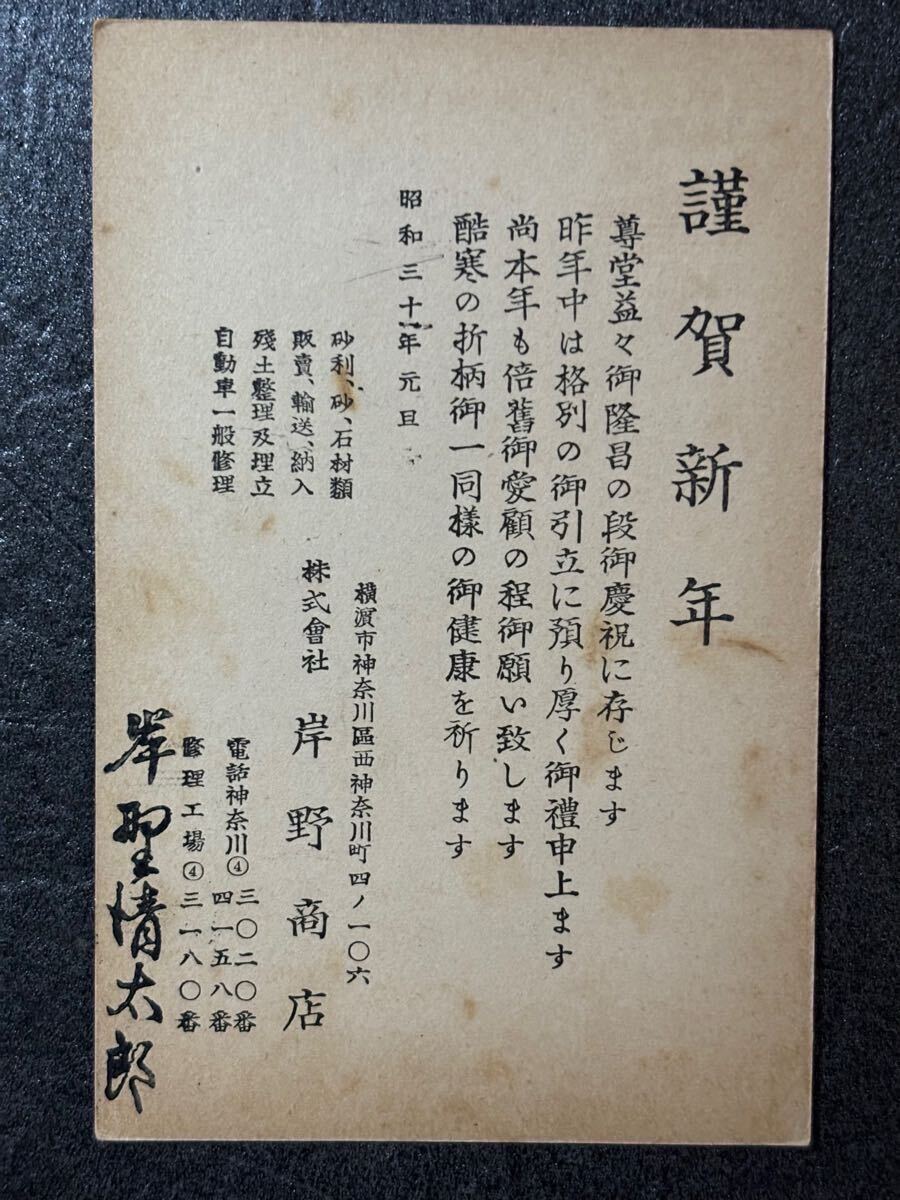 謹賀新年
尊堂益々御隆昌の段御慶祝に存じます
昨年中は格別の御引立に預り厚く御禮申上ます
尚本年も倍舊御愛顧の程御願い致します
酷寒の折柄御一同樣の御健康を祈ります
昭和三十年元旦
砂利、砂、石材類
販賣、輸送、納入
殘土整理及埋立
自動車一般修理
橫濵市神奈川區西神奈川町四ノ一〇六
株式會社 岸野商店
電話神奈川④三〇二〇番
四一五八番
修理工場④三一八〇番
岸野清太郎